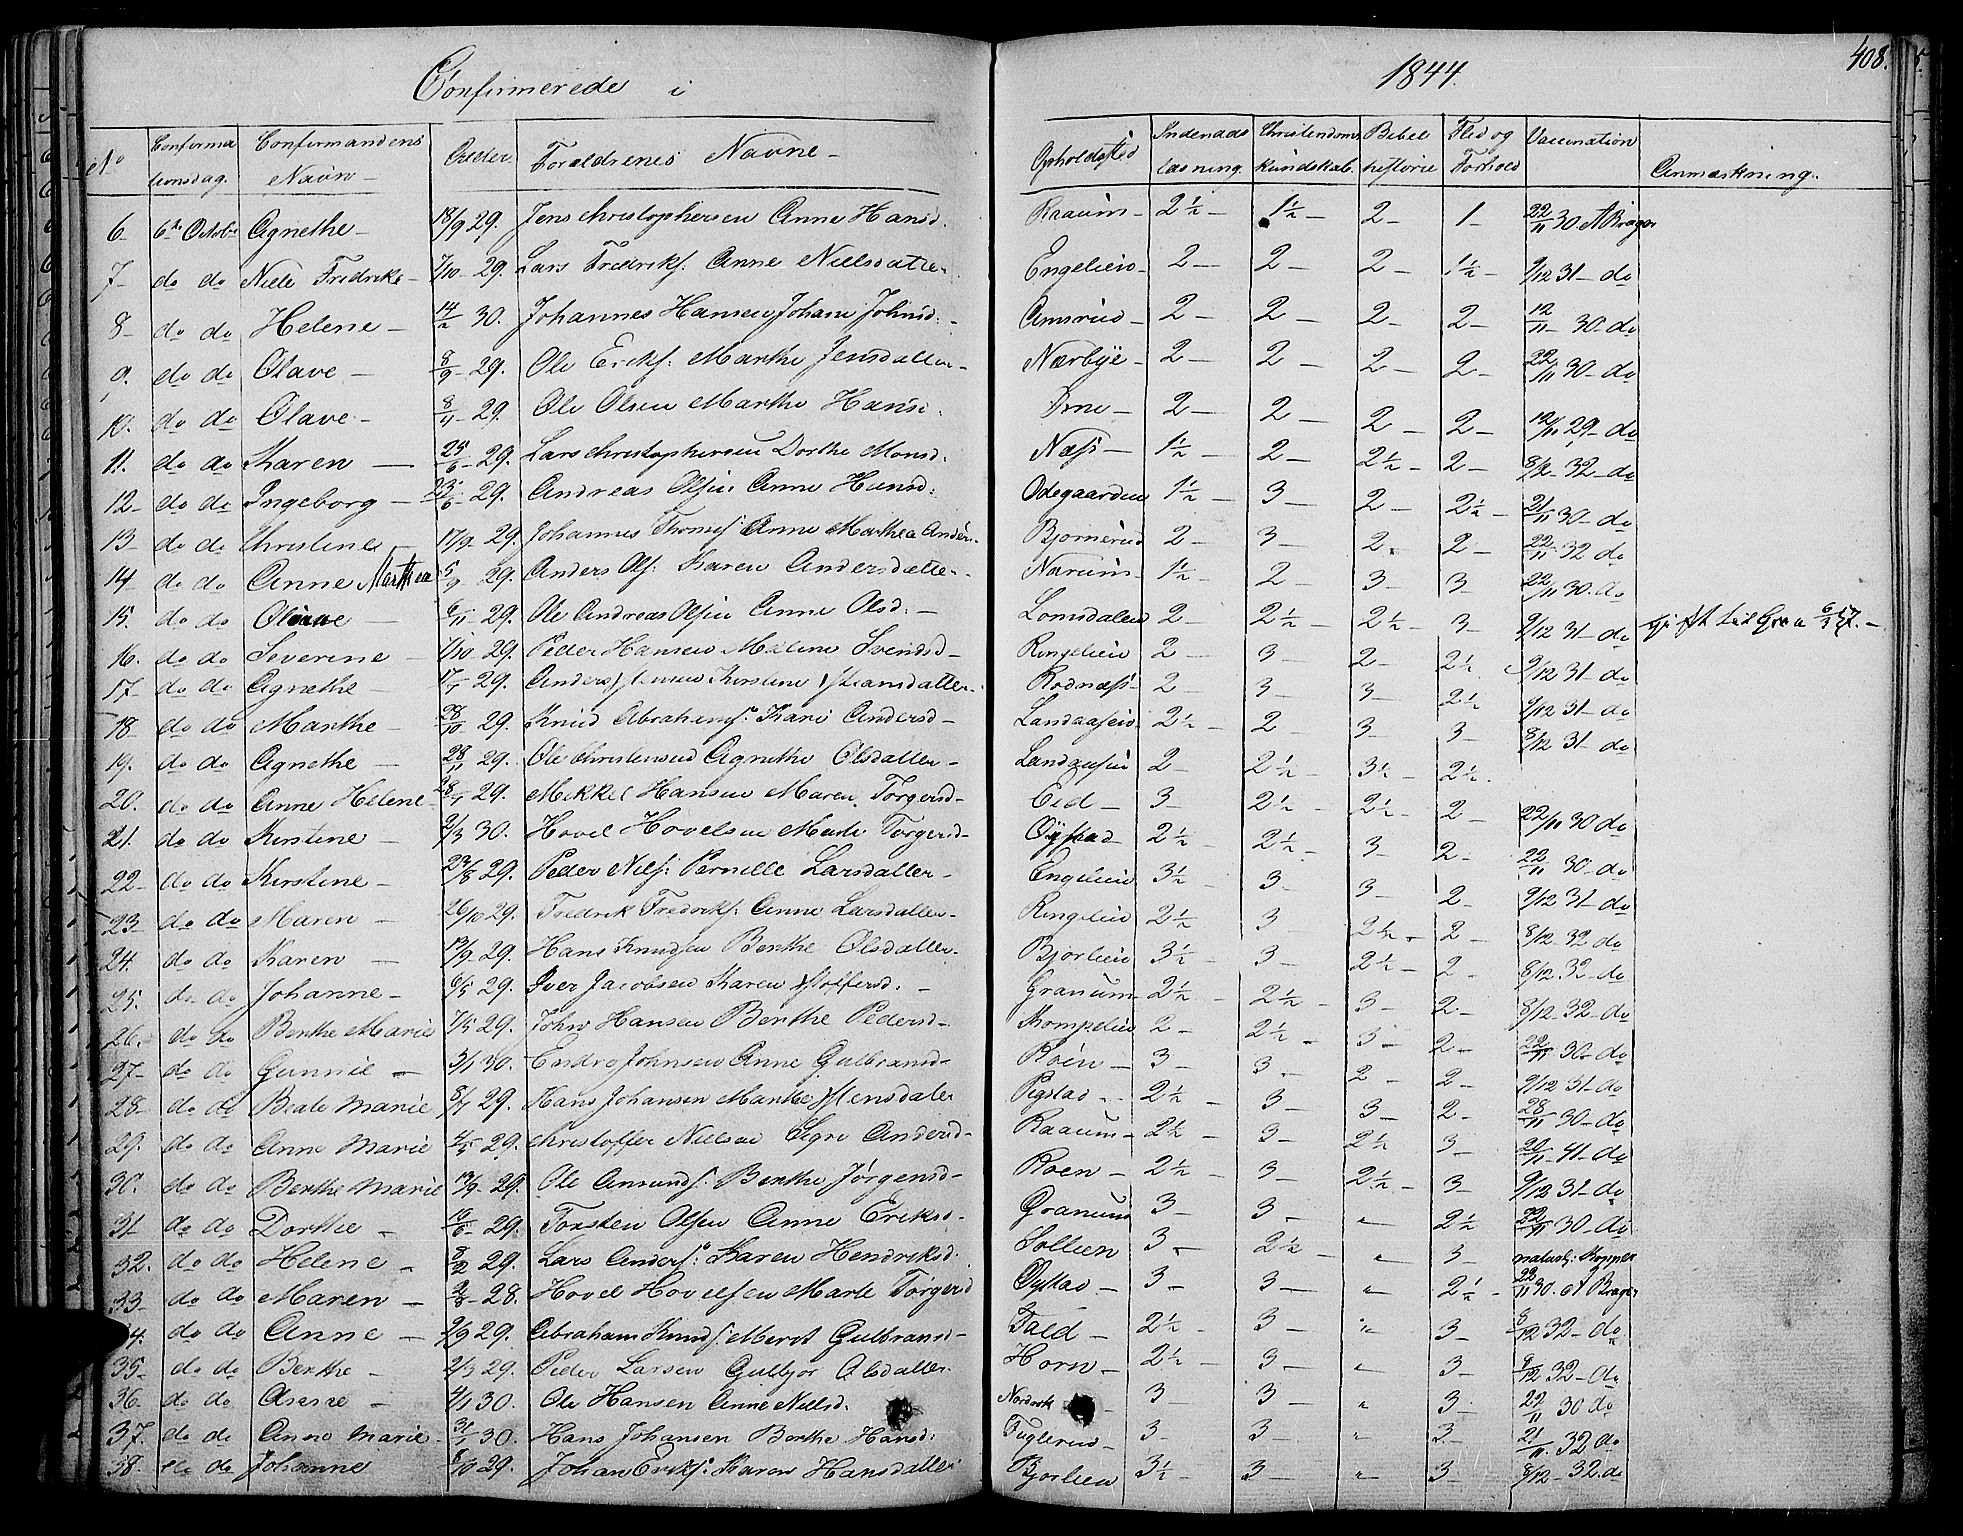 Confirmerede i 1844. 408.
No Confirmationsdag. Confirmandens Navn – Alder. Forældrenes Navne – Opholdsted Indenads læsning. Christendoms kundskab. Bibel historie Flid og Forhold Vaccination Anmærkning.
6 – 6te Octobr Agnethe – 18/9 29. Jens Christophersen Anne Hansd. Raaum – 2½ – 1½ – 2 – 1 – 22/11 30 A Brager
7 – do do Niels Fredriks – 7/10 – 29. Lars Fredriks. Anne Nielsdatter Engelien – 2 – 2 – 2 – 1½ – 9/12 31 – do
8 – do do Helene – 30. Johannes Hansen Johane Johnsd. – Amsrud – 2 – 2 – 2 – 2 – 12/11 30 – do
9. do do Olave – 8/9 – 29. Ole Eriks. Marthe Jensdatter – Nærbye – 2 – 2 – 2 – 2 – 22/11 30 – do
10. do do Olave – 8/11 – 29. Ole Olsen Marthe Hansd. 2 – 2 – 2 – 2 – 12/11 29 – do
11. do do Karen – 25/6 – 29. Lars Christophersen Dorthe Monsd. Næss – 1½ – 2 – 2½ – 2 – 8/12 – 32 – do
12 – do do Ingeborg – 29. Andreas Olsen Anne Hansd. Odegaarden 1½ – 3 – 2 – 2½ – 21/11 30 – do
13 – do do Christine – 17/9 – 29. Johannes Thomes. Anne Marthea Anders. Bjornerud 2 – 3 – 2 – 2 – 22/11 32 do
14 do do Anne Marthea 5/9 29. Anders Ols. Karen Andersdatter – Narum – 1½ – 2 – 3 – 3 – 22/11 30. do
15. do do Oline – 6/11 29. Ole Andreas Olsen Anne Olsd. – Lomsdalen 2 – 2½ – 2½ – 3 – 9/12 31 – do gift til Gran 6/1 57. –
16. do do Severine – 1/10 29. Peder Hansen Maline Svendsd – Ringelien 2 – 3 – 2 – 2½ 9/12 31 do
17. do do Agnethe – 17/1 29. Anders Kirstine Rodnæss – 2 – 3 – 3 – 2½ 9/12 31 – do
18 do do Marthe – 28/10 29. Knud Abrahams. Kari Andersd – Landaasen – 2½ – 2 – 3 – 3 – 8/12 31 – do
19. do do Agnethe – 28/11 29. Ole Christensen Agnethe Olsdatter – Landaasen 2 – 2½ – 3½ – 2½.
20. do do Anne Helene – 28/1 29. Mikkel Hansen Maren Torgersd – Eid – 3 – 2½ – 2½ – 2 – 22/11 30 do
21. do do Kirstine – 9/3 30. Hovel Hovelsen Marte Torgersd – Oystad – 2½ – 2½ – 3 – 2 – 22/11 30 – do
22 – do do Kirstine – 29. Peder Niels. Pernille Larsdatter – Engelien 3½ – 3 – 3 – 2 – 9/12 31 – do
23 – do do Maren – 26/10 29. Fredrik Fredriks. Anne Larsdatter – Ringelien 2½ – 3 – 2½ – 2 – 8/12 32 do
24. do do Karen – 13/9 29. Hans Knudsen Berthe Olsdatter – Bjorlien 3½ – 3 – 2½ – 2 – 8/12 32 – do
25. do do Johanne – 6/5 29. Iver Jacobsen Karen Stoffersd. – Granum – 2½ – 2½ – 3 – 2 – 8/12 – 32 – do
26. do do Berthe Marie 7/5 29. John Hansen Berthe Pedersd – Trompelien 2 – 2½ – 3 – 2 – 22/11 30 – do
27 – do do Gunnil – 3/1 30. Endre Johnsen Anne Gulbransd – Roen – 3 – 3 – 2 – 2 – 9/12 31 – do
28 – do do Beate Marie 8/7 29. Hans Johansen Marthe Stensdater Pigstad – 2½ – 3 – 3 – 2 – 28/11 30 – do
29. do do Anne Marie 29. Christoffer Nielsen Signe Andersd – Raaum – 2½ – 3 – 2½ 3 – 20/11 – 41 – do
30. do do Berthe Marie 13/9 – 29. Ole Amunds. Berthe Jörgensd – Roen – 2½ – 3 – 2½ – 3 – 9/12 31 – do
31 do do Dorthe – 19/6 – 29. Torsten Olsen Anne Eriksd – Granum 3 – 3 – " 2½ 22/11 30 – do
32. do do Helene – 8/2 29. Lars Anders. Karen Hendriksd. Sollien 3 – 2½ – " 3 – naturl: Kopper
33 – do do Maren – 2/8 – 28. Hovel Hovelsen Marte Torgersd Oystad – 3 – 3 – " 2½ – 22/11 30. A Brager
34. do do Anne – 9/9 29. Abraham Knuds. Merit Gulbransd – Fald – 2½ – 3 – " 3 – 8/12 32 – do
35 – do do Berthe – 2/3 29. Peder Larsen Gulbjør Olsdatter – Horn – 2½ – 3 – " 3 – 9/12 32 – do
36. do do Anne – 4/1 30. Ole Hansen Anne Nielsd. 3 – 3 – " 3 – 22/11 30 do
37. do do Anne Marie – 31/1 30. Hans Johansen Berthe Hansd. Fuglerud – 3 – 3 – " 3 – 21/11 32 do
38. do do Johanne 8/10 29. Johan Eriks. Karen Hansdatter Bjorlien 3½ – 3 – " 3 – 8/12 – 32. do